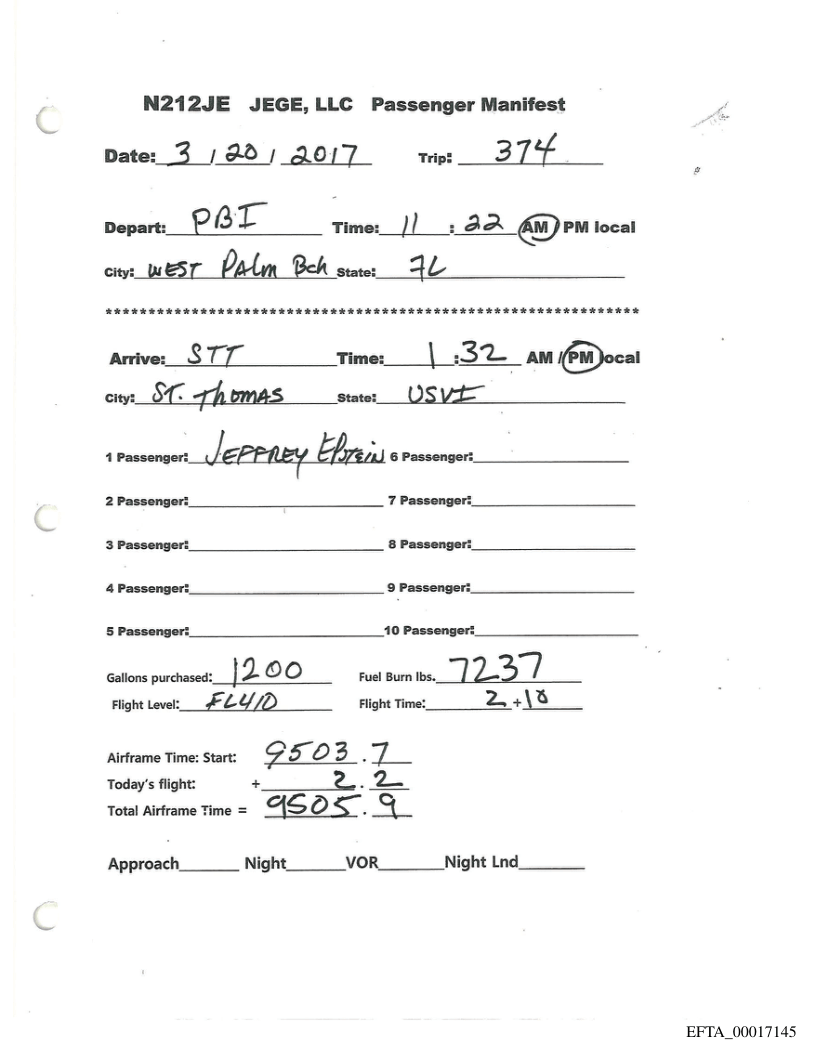 N212JE JEGE, LLC Passenger Manifest
Date: 3 / 20 / 2017 Trip: 374
Depart: PBI Time: 11 : 22 AM / PM local
City: WEST PALM Bch State: FL
***************************************************************
Arrive: STT Time: 1 : 32 AM / PM local
City: ST. THOMAS State: USVI
1 Passenger: JEFFREY EPSTEIN 6 Passenger:
2 Passenger: 7 Passenger:
3 Passenger: 8 Passenger:
4 Passenger: 9 Passenger:
5 Passenger: 10 Passenger:
Gallons purchased: 1200 Fuel Burn lbs. 7237
Flight Level: FL410 Flight Time: 2 + 10
Airframe Time: Start: 9503 . 7
Today's flight: + 2 . 2
Total Airframe Time = 9505 . 9
Approach______ Night______ VOR______ Night Lnd______
EFTA_00017145